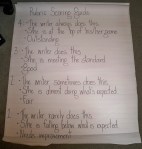 Scoring Rubric
4 - The writer always does this.
- She is at the top of his/her game
- Outstanding
3 - The writer does this.
- She is meeting the standard
- Good
2 - The writer sometimes does this.
- She is almost doing what's expected
- Fair
1 - The writer rarely does this.
- She is falling below what is expected
- Needs improvement